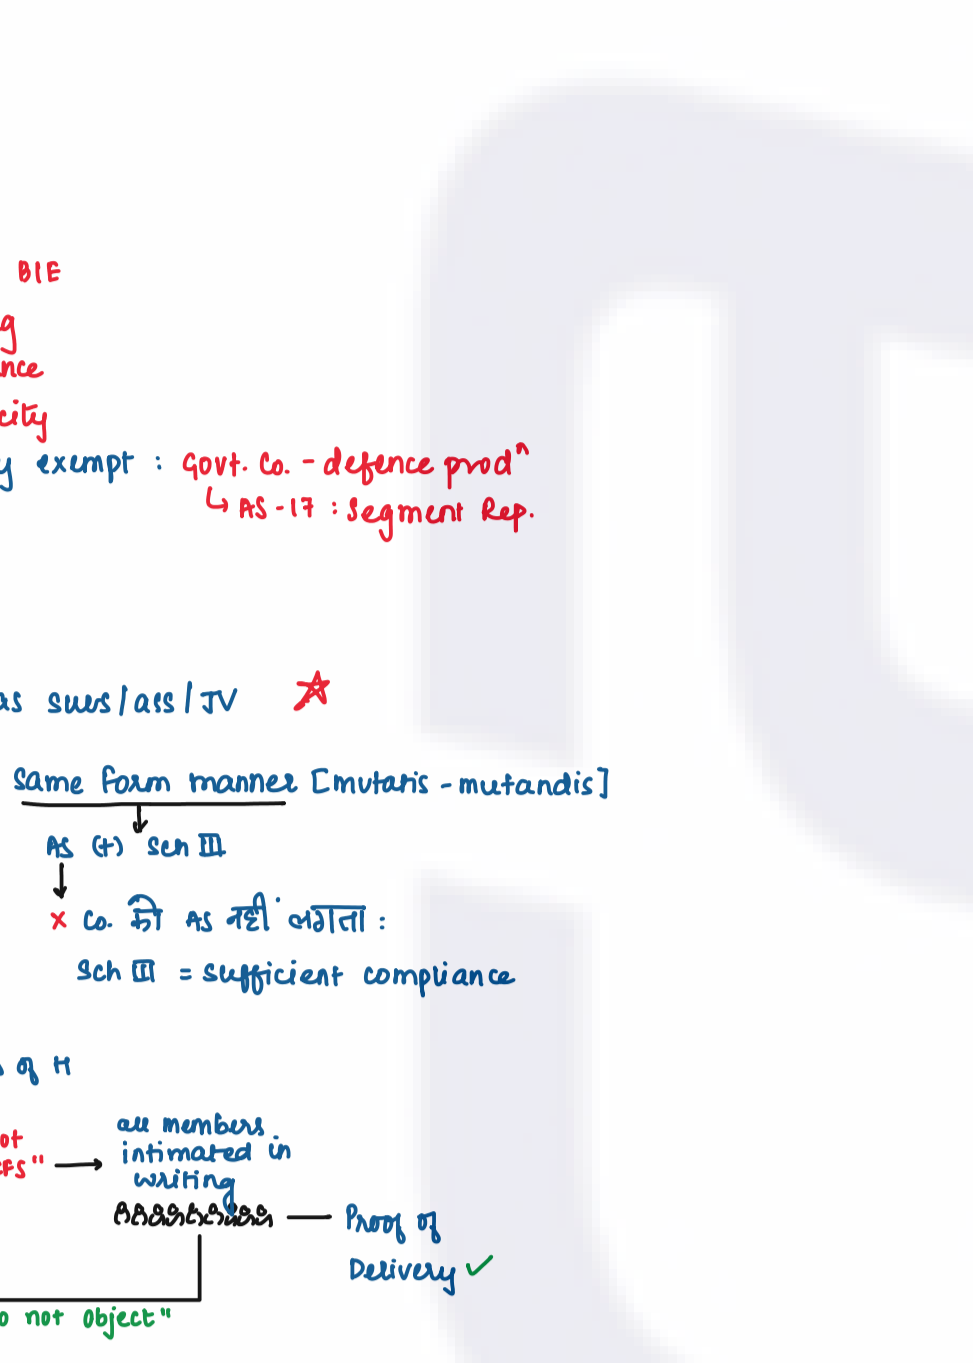 BIE
g
nce
city
y exempt : Govt. Co. - defence prodⁿ
↳ AS-17 : Segment Rep.
as subs/ass/JV
Same form manner [mutatis-mutandis]
AS (+) Sch III
x Co. को AS नहीं लगता :
Sch III = sufficient compliance
of H
all members
ot
intimated in
CFS" →
writing
Proof of
Delivery ✓
o not object"